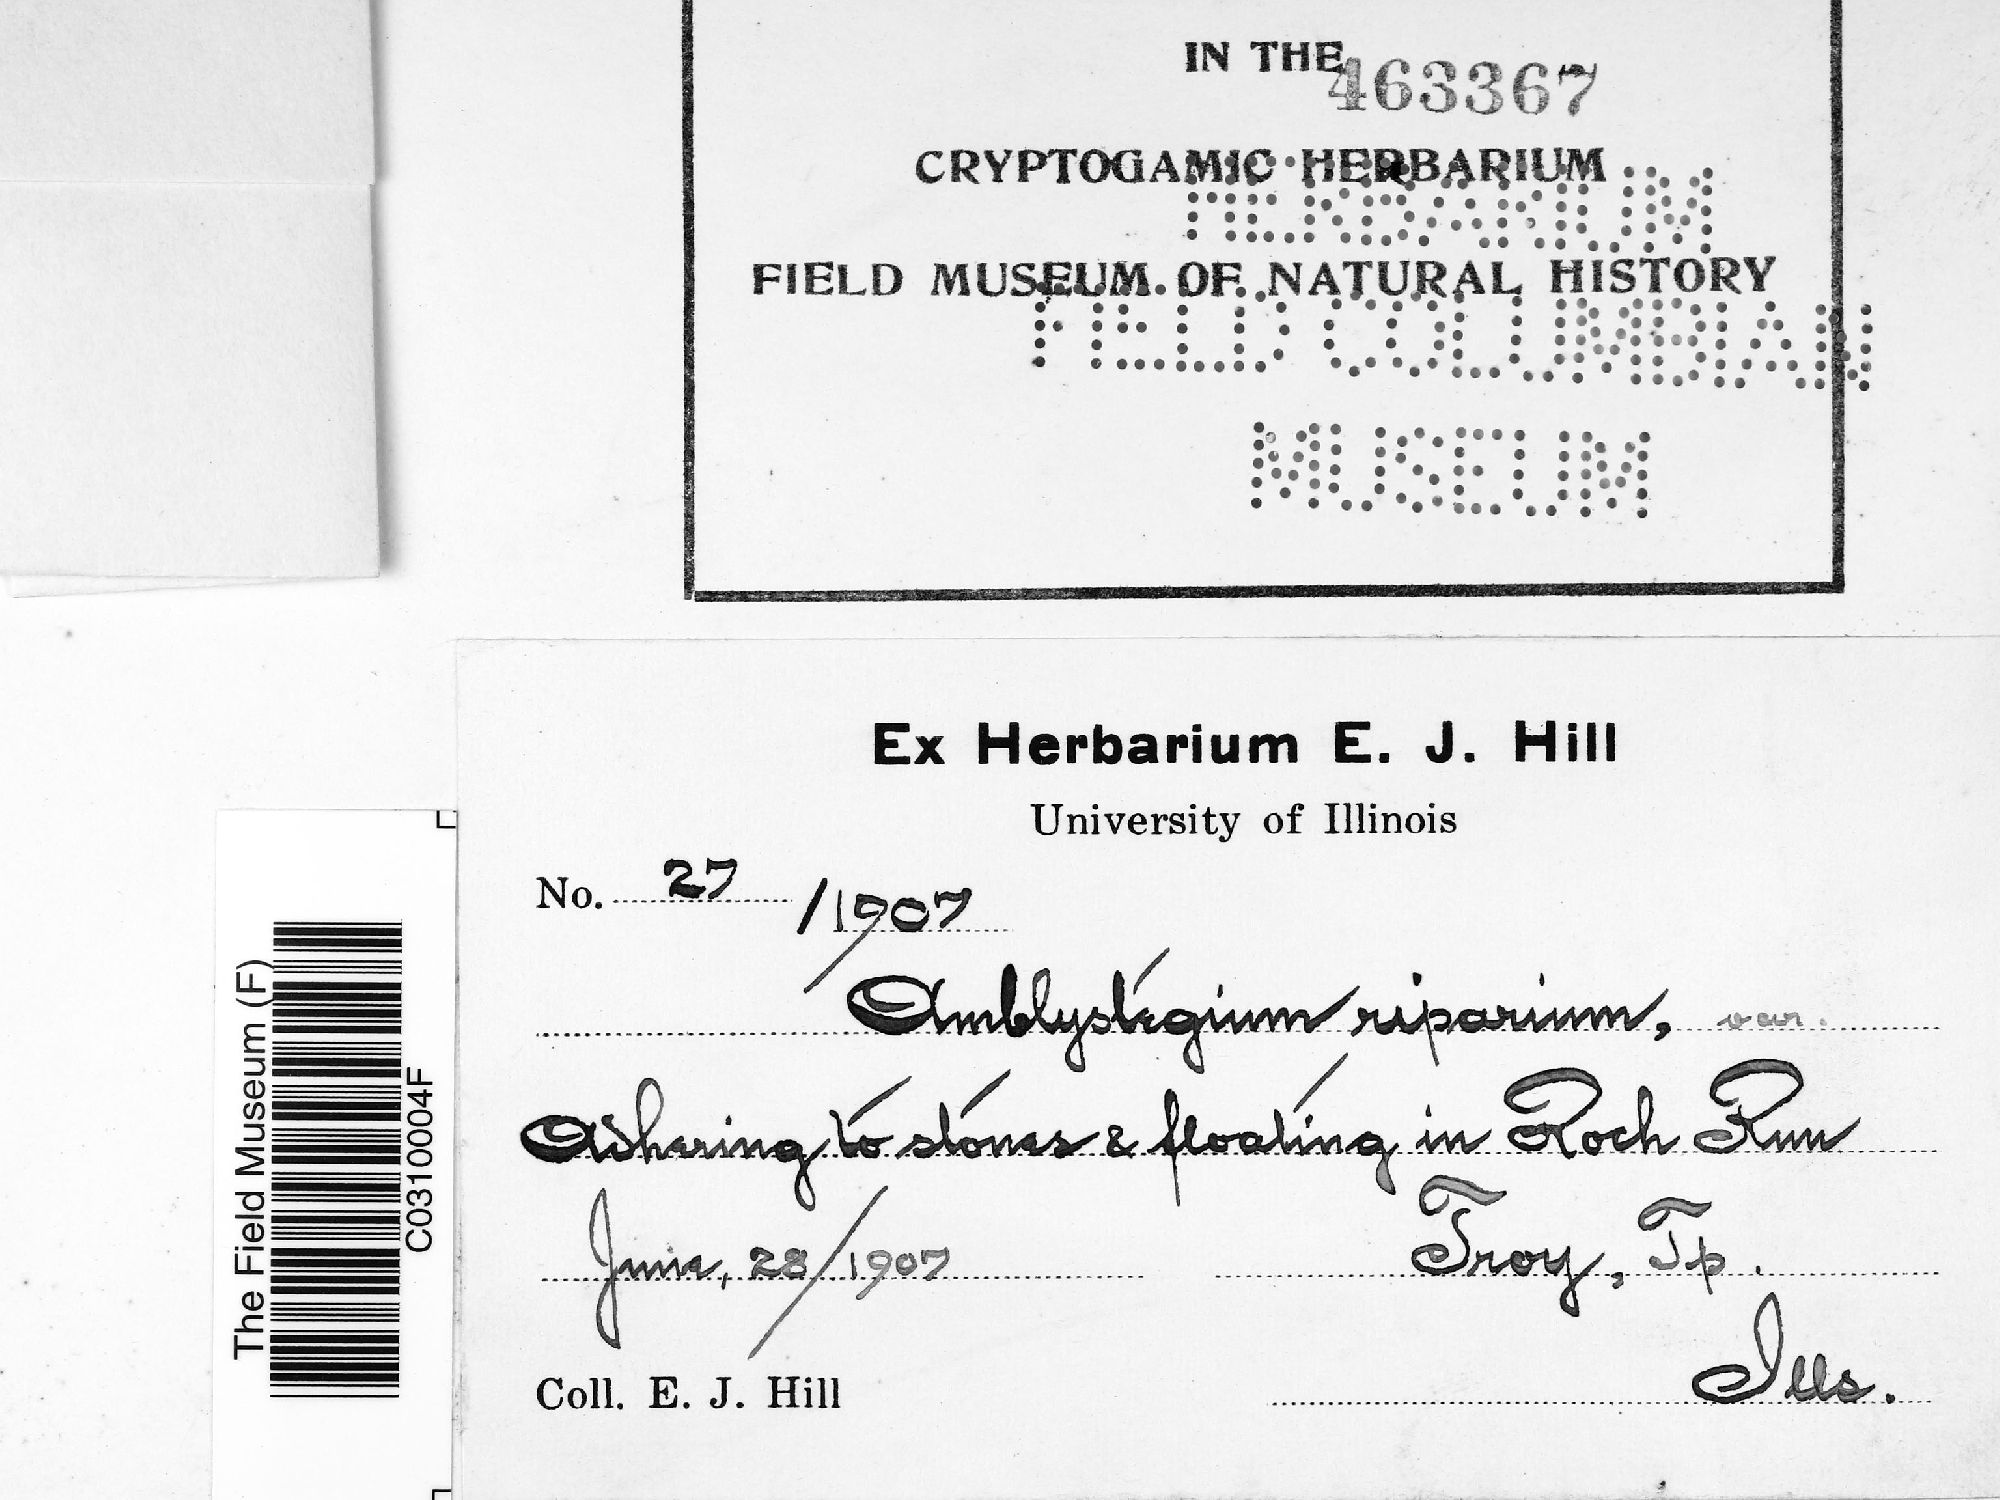 IN THE
463367
CRYPTOGAMIC HERBARIUM
HERBARIUM
FIELD MUSEUM OF NATURAL HISTORY
FIELD COLUMBIAN
MUSEUM
Ex Herbarium E. J. Hill
University of Illinois
No. 27 /1907
Amblystegium riparium, var.
Adhering to stones & floating in Rock Run
June, 28/1907 Troy, Tp.
Ills.
Coll. E. J. Hill
The Field Museum (F)
C0310004F